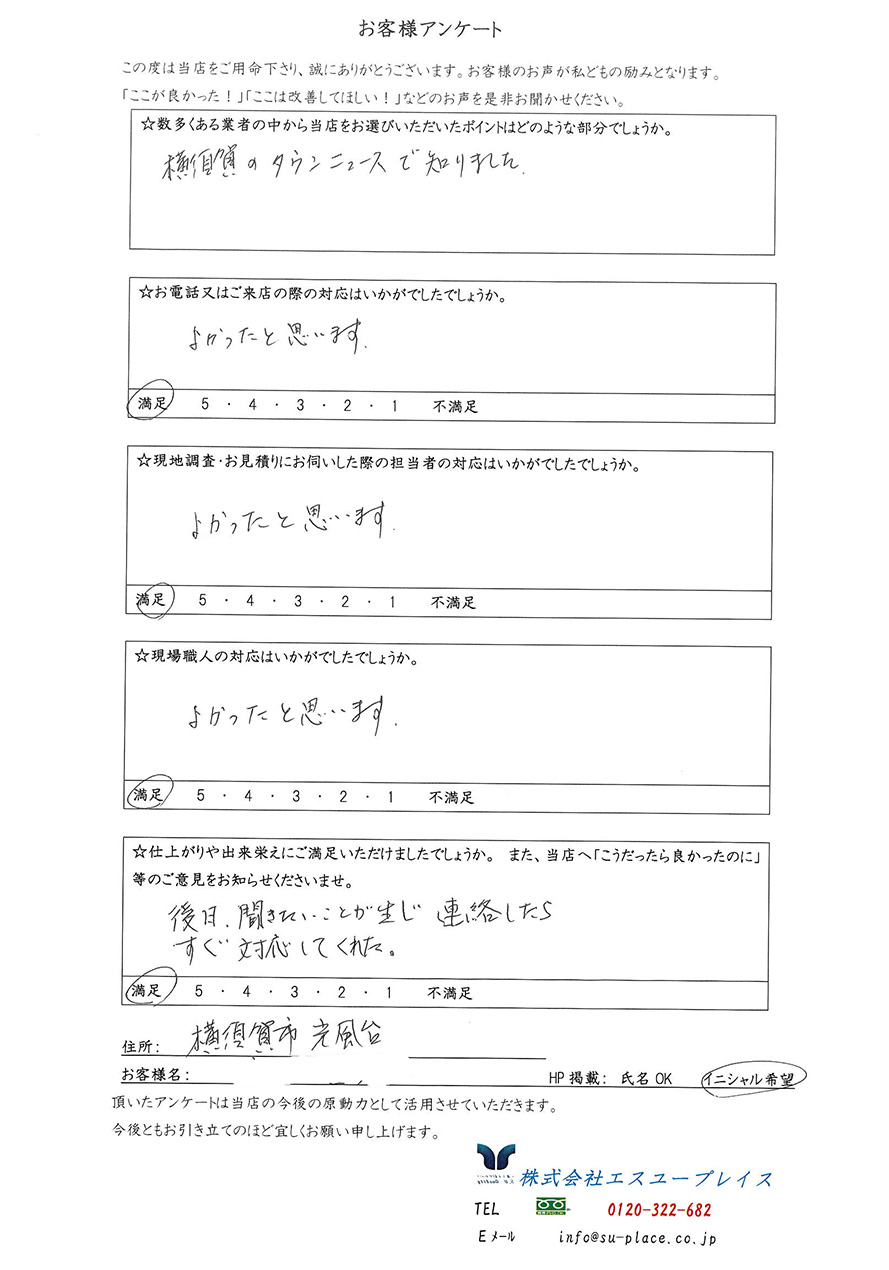 お客様アンケート
この度は当店をご用命下さり、誠にありがとうございます。お客様のお声が私どもの励みとなります。
「ここが良かった！」「ここは改善してほしい！」などのお声を是非お聞かせください。
☆数多くある業者の中から当店をお選びいただいたポイントはどのような部分でしょうか。
横須賀のタウンニュースで知りました.
☆お電話又はご来店の際の対応はいかがでしたでしょうか。
よかったと思います.
満足 5 ・ 4 ・ 3 ・ 2 ・ 1 不満足
☆現地調査・お見積りにお伺いした際の担当者の対応はいかがでしたでしょうか。
よかったと思います.
満足 5 ・ 4 ・ 3 ・ 2 ・ 1 不満足
☆現場職人の対応はいかがでしたでしょうか。
よかったと思います.
満足 5 ・ 4 ・ 3 ・ 2 ・ 1 不満足
☆仕上がりや出来栄えにご満足いただけましたでしょうか。 また、当店へ「こうだったら良かったのに」
等のご意見をお知らせくださいませ。
後日、聞きたいことが生じ 連絡したら
すぐ対応してくれた。
満足 5 ・ 4 ・ 3 ・ 2 ・ 1 不満足
住所: 横須賀市 光風台
お客様名: HP 掲載: 氏名 OK イニシャル希望
頂いたアンケートは当店の今後の原動力として活用させていただきます。
今後ともお引き立てのほど宜しくお願い申し上げます。
株式会社エスユープレイス
TEL 0120-322-682
Eメール info@su-place.co.jp